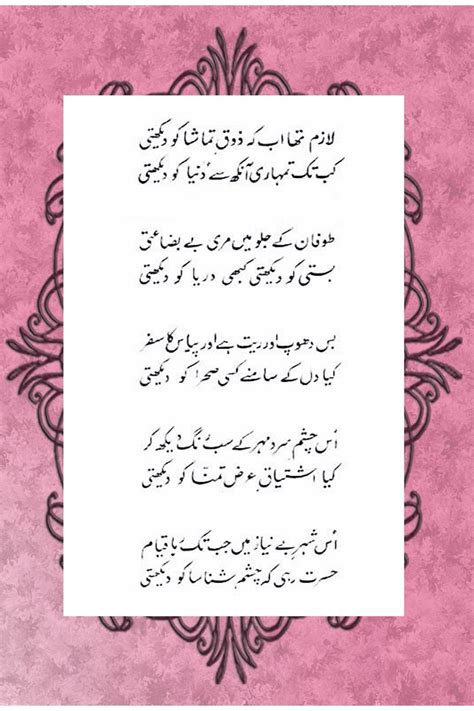 لازم تھا اب کہ ذوقِ تماشا کو دیکھتی
کب تک تمہاری آنکھ سے دُنیا کو دیکھتی
طوفان کے جلو میں مری بے بضاعتی
بستی کو دیکھتی کبھی دریا کو دیکھتی
بس دھوپ اور ریت ہے اور پیاس کا سفر
کیا دل کے سامنے کسی صحرا کو دیکھتی
اُس چشمِ سرد مہر کے سب رنگ دیکھ کر
کیا اشتیاقِ عرضِ تمنّا کو دیکھتی
اُس شہرِ بے نیاز میں جب تک رہا قیام
حسرت رہی کہ چشمِ شناسا کو دیکھتی